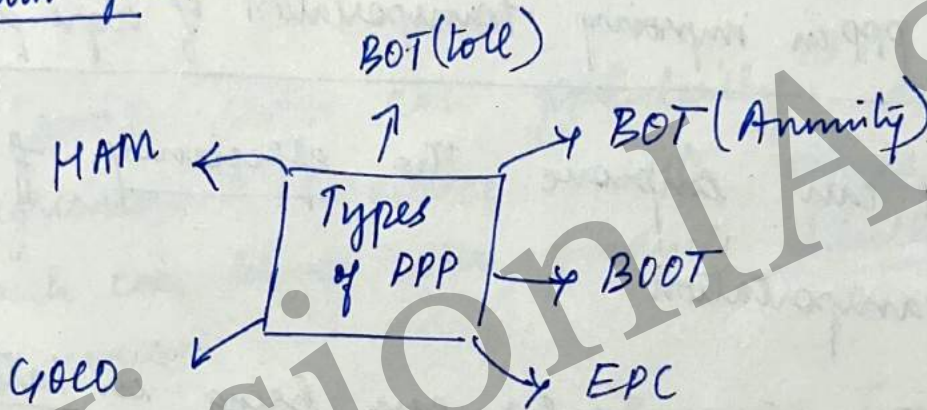 BOT (toll)
HAM
BOT (Annuity)
Types
of PPP
BOOT
GOCO
EPC
VisionIAS